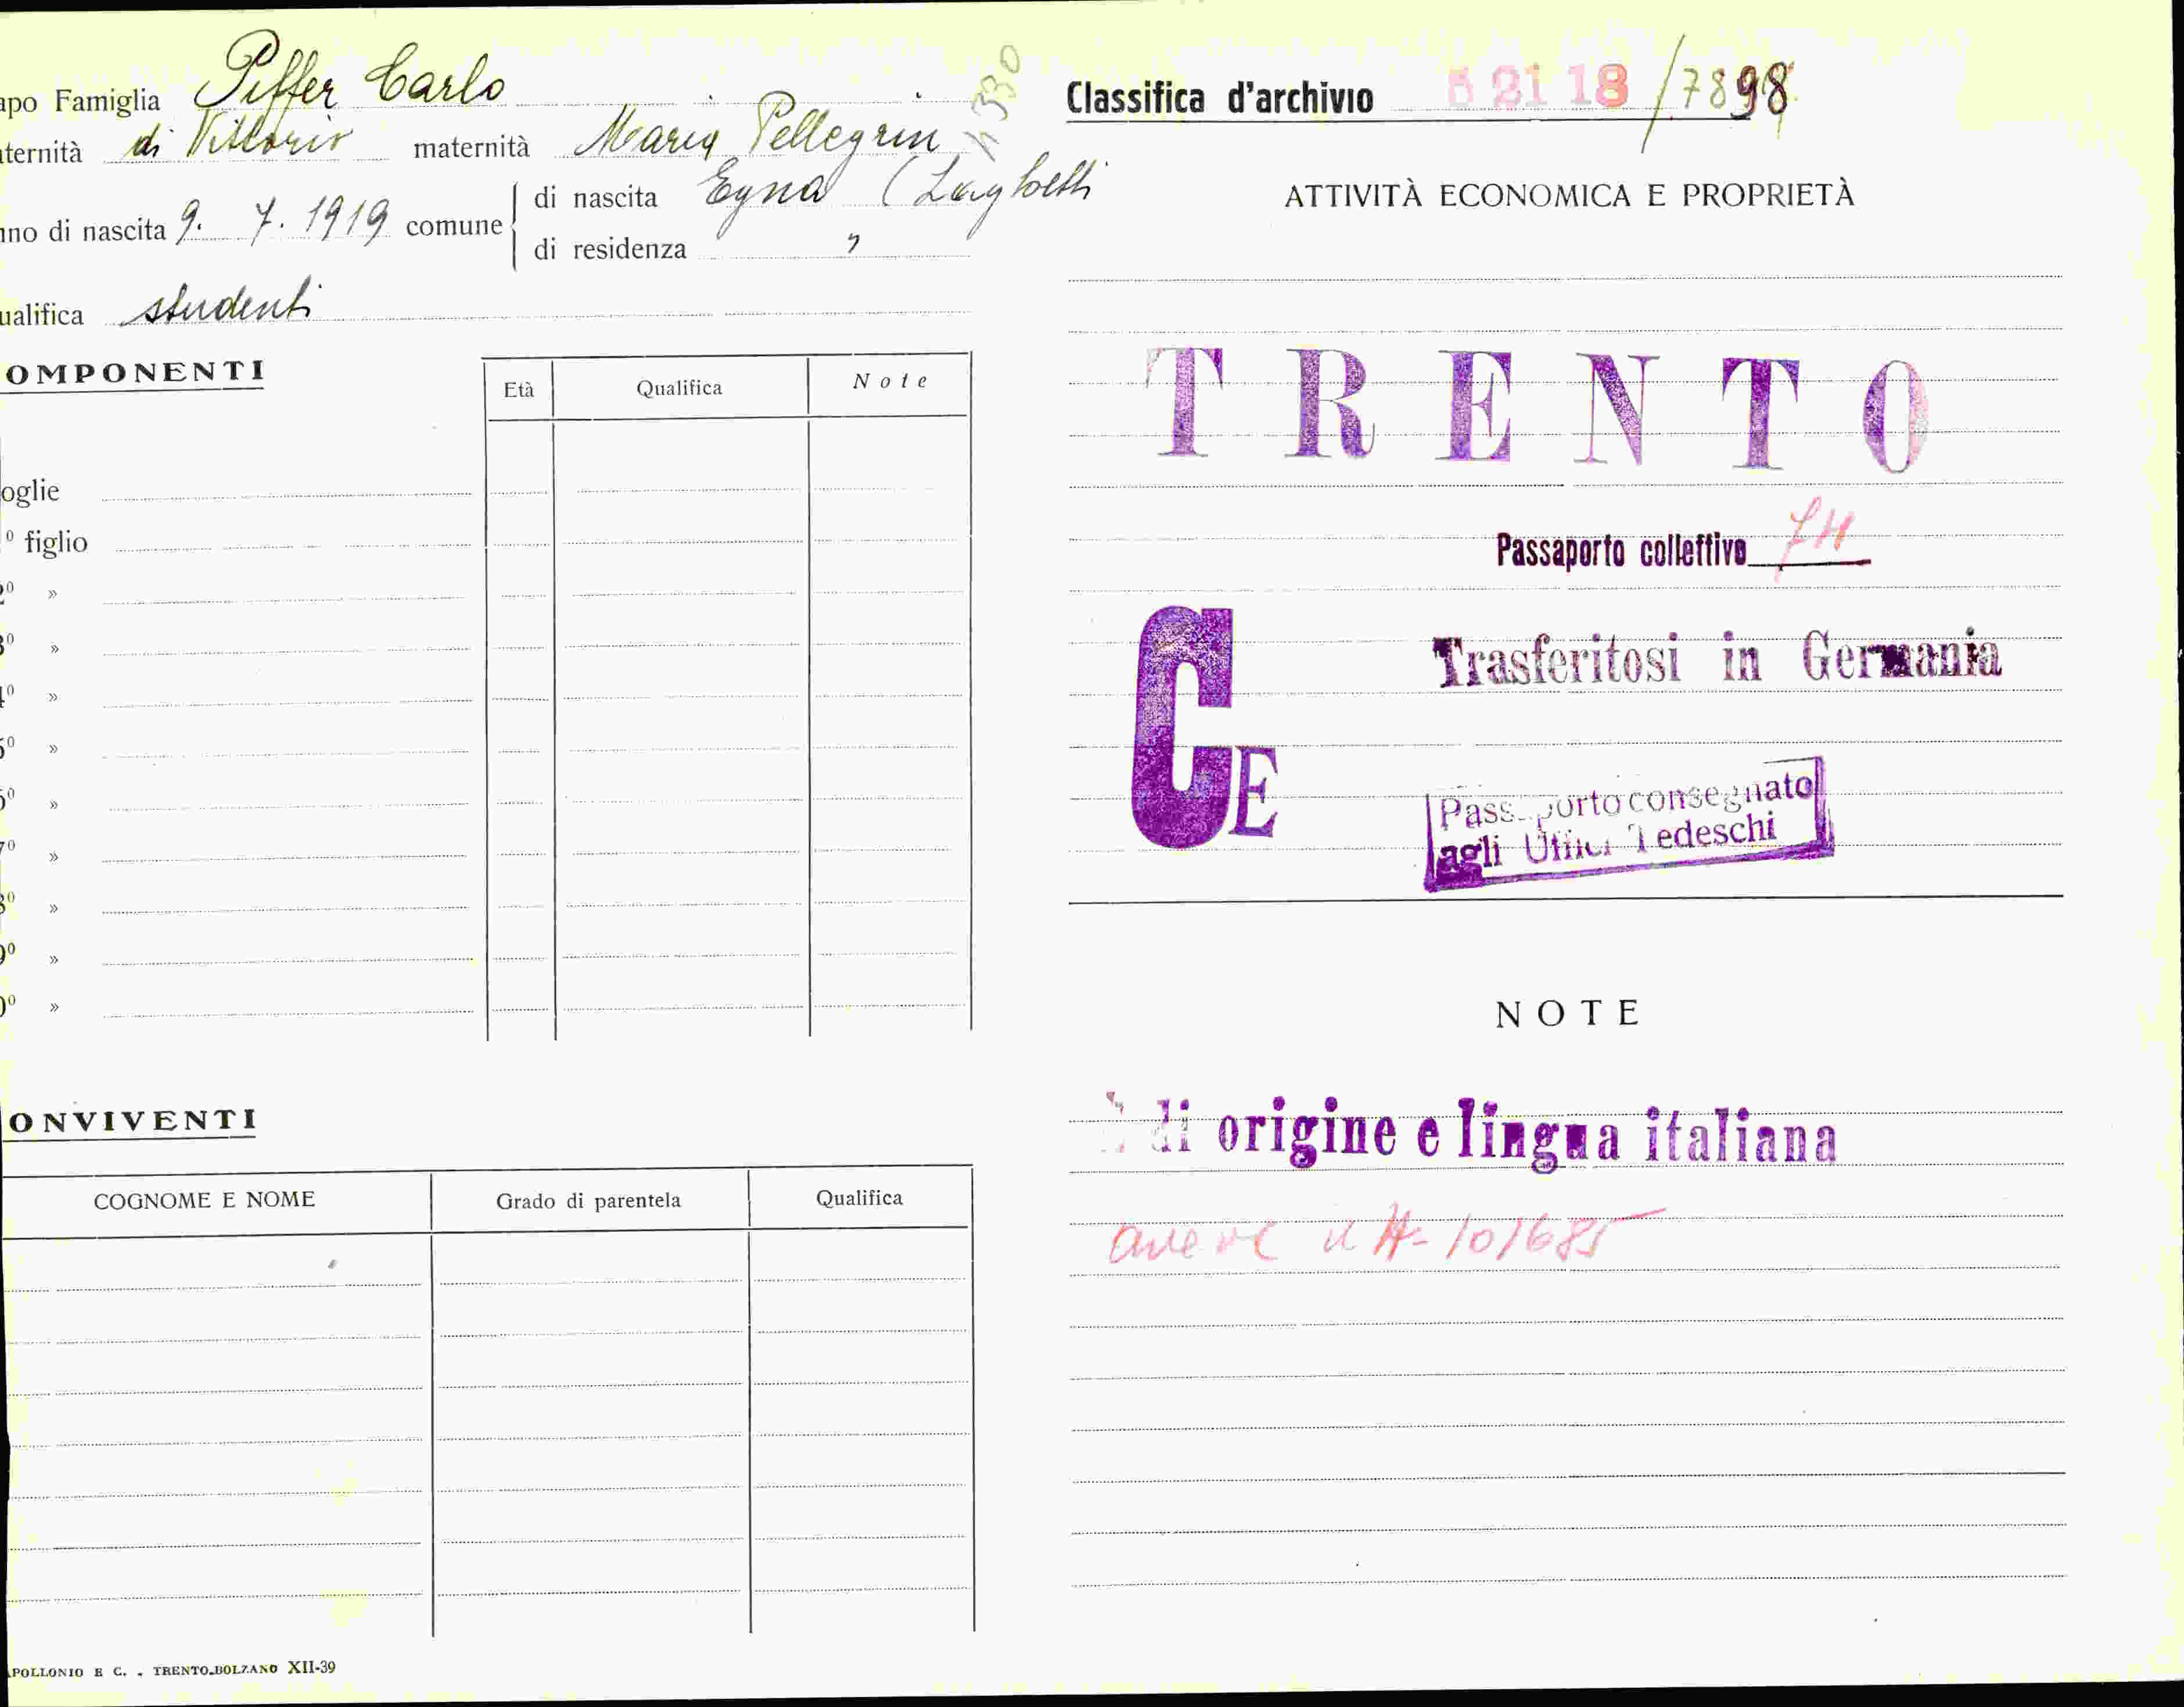 apo Famiglia Piffer Carlo
ternità di Vittorio maternità Maria Pellegrin
nno di nascita 9. 7. 1919 comune di nascita Egna (Laghetti
di residenza "
ualifica studenti
4330
OMPONENTI
Età Qualifica Note
oglie
º figlio
2º »
3º »
4º »
5º »
6º »
7º »
8º »
9º »
0º »
ONVIVENTI
COGNOME E NOME Grado di parentela Qualifica
APOLLONIO E C. - TRENTO-BOLZANO XII-39
Classifica d'archivio 6 21 18 / 7898
ATTIVITÀ ECONOMICA E PROPRIETÀ
TRENTO
Passaporto collettivo
Trasferitosi in Germania
CE
Passaporto consegnato
agli Uffici Tedeschi
NOTE
È di origine e lingua italiana
101685